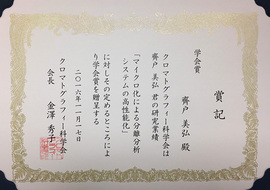 賞記
学会賞
齊戸 美弘 殿
クロマトグラフィー科学会は
齊戸 美弘 君の研究業績
「マイクロ化による分離分析
システムの高性能化」
に対しその定めるところによ
り学会賞を贈呈する
二〇一六年一一月一七日
クロマトグラフィー科学会
会長 金澤 秀子